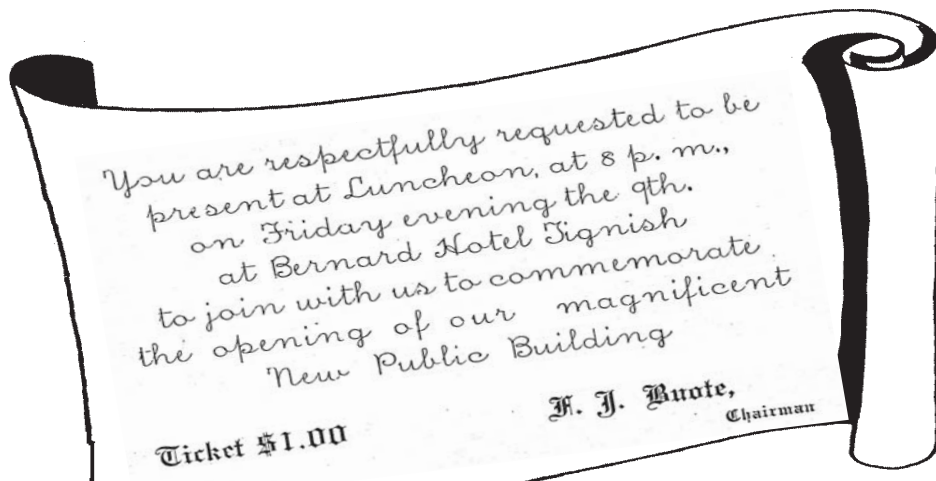 You are respectfully requested to be
present at Luncheon, at 8 p. m.,
on Friday evening the 9th.
at Bernard Hotel Tignish
to join with us to commemorate
the opening of our magnificent
New Public Building
F. J. Buote,
Chairman
Ticket $1.00